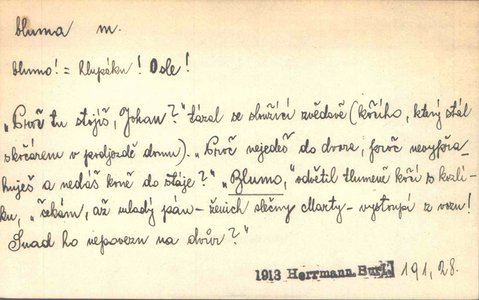 bluma m.
blumo! = hlupáku! Osle!
„Proč tu stojíš, Johan?" tázal se sloužící zvědavě (kočího, který stál
s kočárem v podjezdě domu). „Proč nejedeš do dvora, proč nevypřa-
huješ a nedáš koně do stáje?" „Blumo," odvětil tlumeně kočí s kozlí-
ku, „čekám, až mladý pán – ženich slečny Marty – vystoupí z vozu!
Snad ho nepovezu na dvůr?"
1913 Herrmann, 191, 28.